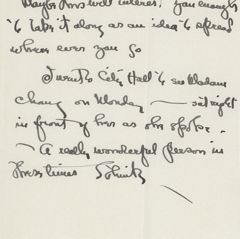 Maybe this will interest. You ought
to take it along as an idea to spread
where ever you go
I went to City Hall to see Madam
Chang on Monday — sat right
in front of her as she spoke.
— A really wonderful person in
these times